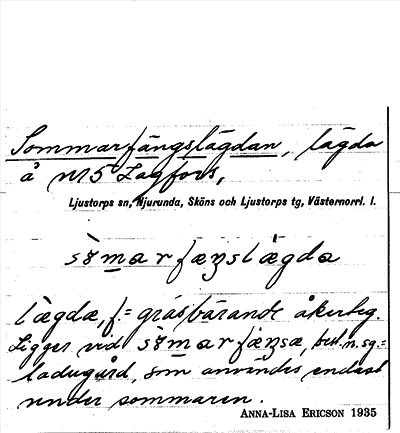 Sommarfängslägdan, lägda
å N:5 Lagfors,
Ljustorps sn, Njurunda, Sköns och Ljustorps tg, Västernorrl. l.
sòmarfæŋslægda
lægdæ, f. = gräsbärande åkerteg.
Ligger vid sòmarfæŋsæ, best. n. sg. =
ladugård, som användes endast
under sommaren.
ANNA-LISA ERICSON 1935